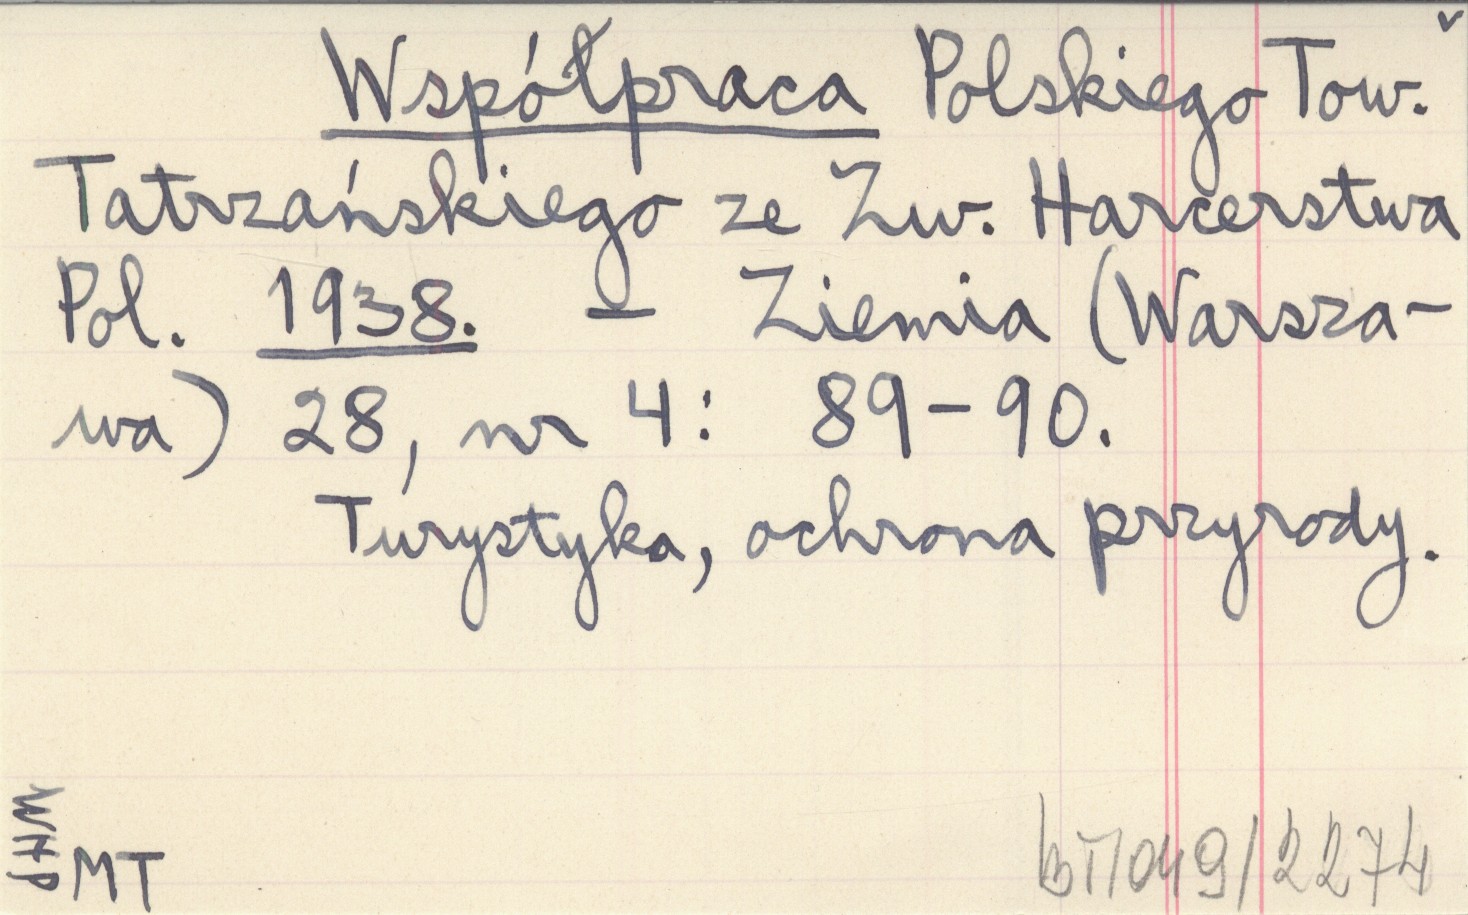 Współpraca Polskiego Tow.
Tatrzańskiego ze Zw. Harcerstwa
Pol. 1938. – Ziemia (Warsza-
wa) 28, nr 4: 89-90.
Turystyka, ochrona przyrody.
WHP
MT
BT/049/2274